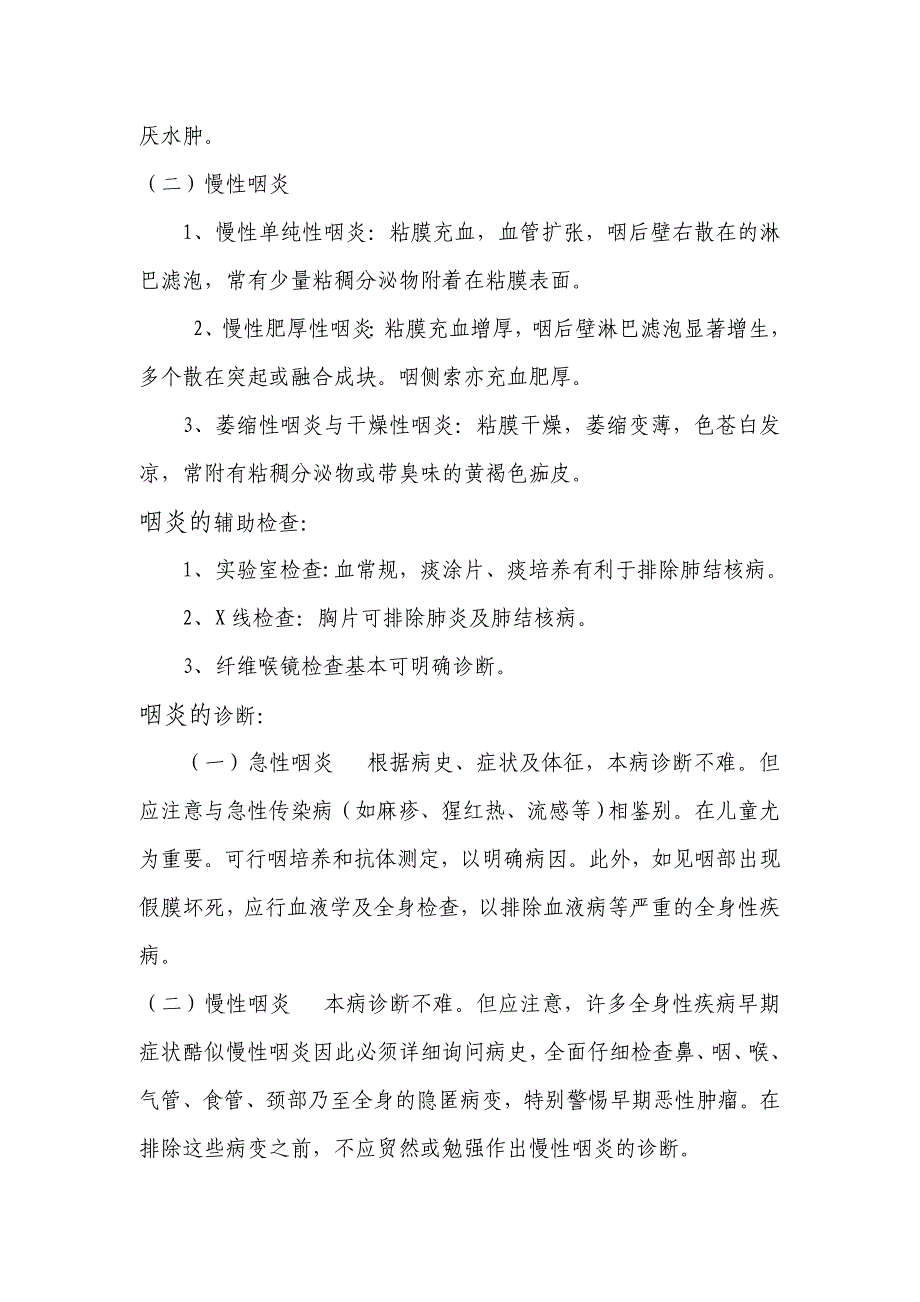 厌水肿。
（二）慢性咽炎
1、慢性单纯性咽炎：粘膜充血，血管扩张，咽后壁右散在的淋
巴滤泡，常有少量粘稠分泌物附着在粘膜表面。
2、慢性肥厚性咽炎：粘膜充血增厚，咽后壁淋巴滤泡显著增生，
多个散在突起或融合成块。咽侧索亦充血肥厚。
3、萎缩性咽炎与干燥性咽炎：粘膜干燥，萎缩变薄，色苍白发
凉，常附有粘稠分泌物或带臭味的黄褐色痂皮。
咽炎的辅助检查：
1、实验室检查：血常规，痰涂片、痰培养有利于排除肺结核病。
2、X 线检查：胸片可排除肺炎及肺结核病。
3、纤维喉镜检查基本可明确诊断。
咽炎的诊断：
（一）急性咽炎　根据病史、症状及体征，本病诊断不难。但
应注意与急性传染病（如麻疹、猩红热、流感等）相鉴别。在儿童尤
为重要。可行咽培养和抗体测定，以明确病因。此外，如见咽部出现
假膜坏死，应行血液学及全身检查，以排除血液病等严重的全身性疾
病。
（二）慢性咽炎　本病诊断不难。但应注意，许多全身性疾病早期
症状酷似慢性咽炎因此必须详细询问病史，全面仔细检查鼻、咽、喉、
气管、食管、颈部乃至全身的隐匿病变，特别警惕早期恶性肿瘤。在
排除这些病变之前，不应贸然或勉强作出慢性咽炎的诊断。